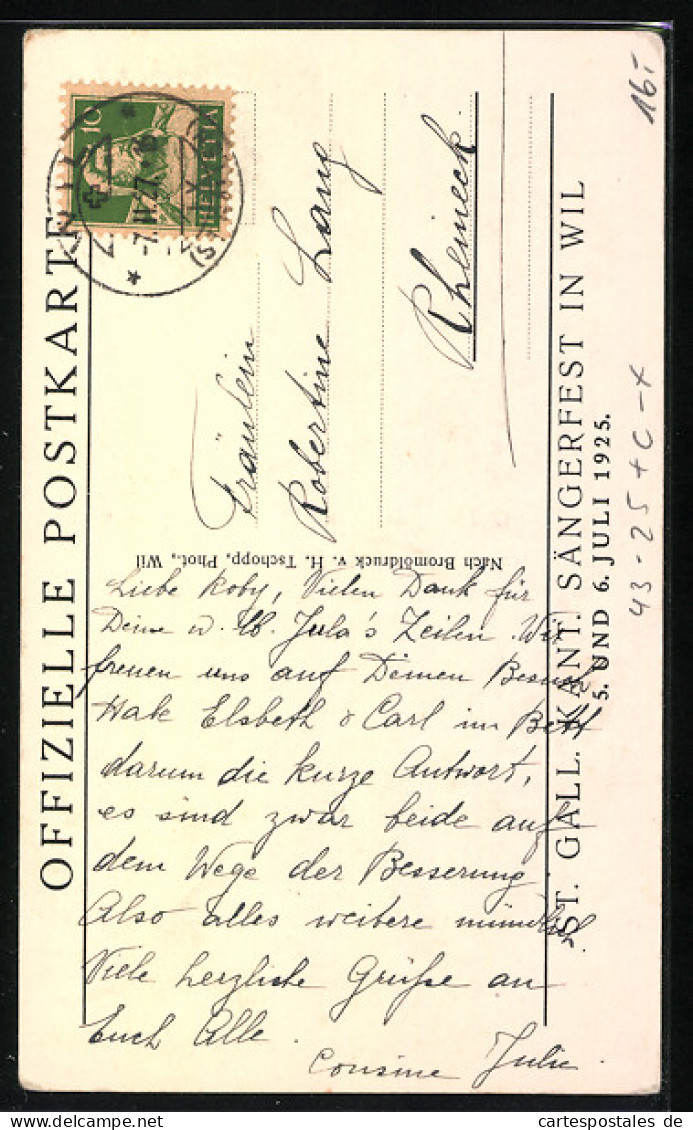 OFFIZIELLE POSTKARTE
ST. GALL. KANT. SÄNGERFEST IN WIL
5. UND 6. JULI 1925.
Nach Bromöldruck v. H. Tschopp, Phot., Wil
10
HELVETIA
WIL
Fräulein
Robertine Lang
Rheineck.
Liebe Roby, Vielen Dank für
Deine u. lb. Jula's Zeilen. Wir
freuen uns auf Deinen Besuch
Habe Elsbeth & Carl im Bett
darum die kurze Antwort,
es sind zwar beide auf
dem Wege der Besserung
Also alles weitere mündlich.
Viele herzliche Grüße an
Euch Alle.
Cousine Julie.
43-25+C-x
delcampe.net
cartespostales de